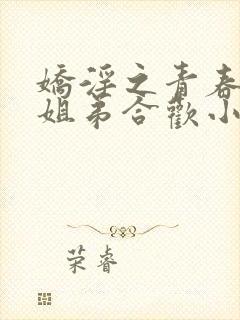 嬌淫之青春
姐弟合歡小
荣睿